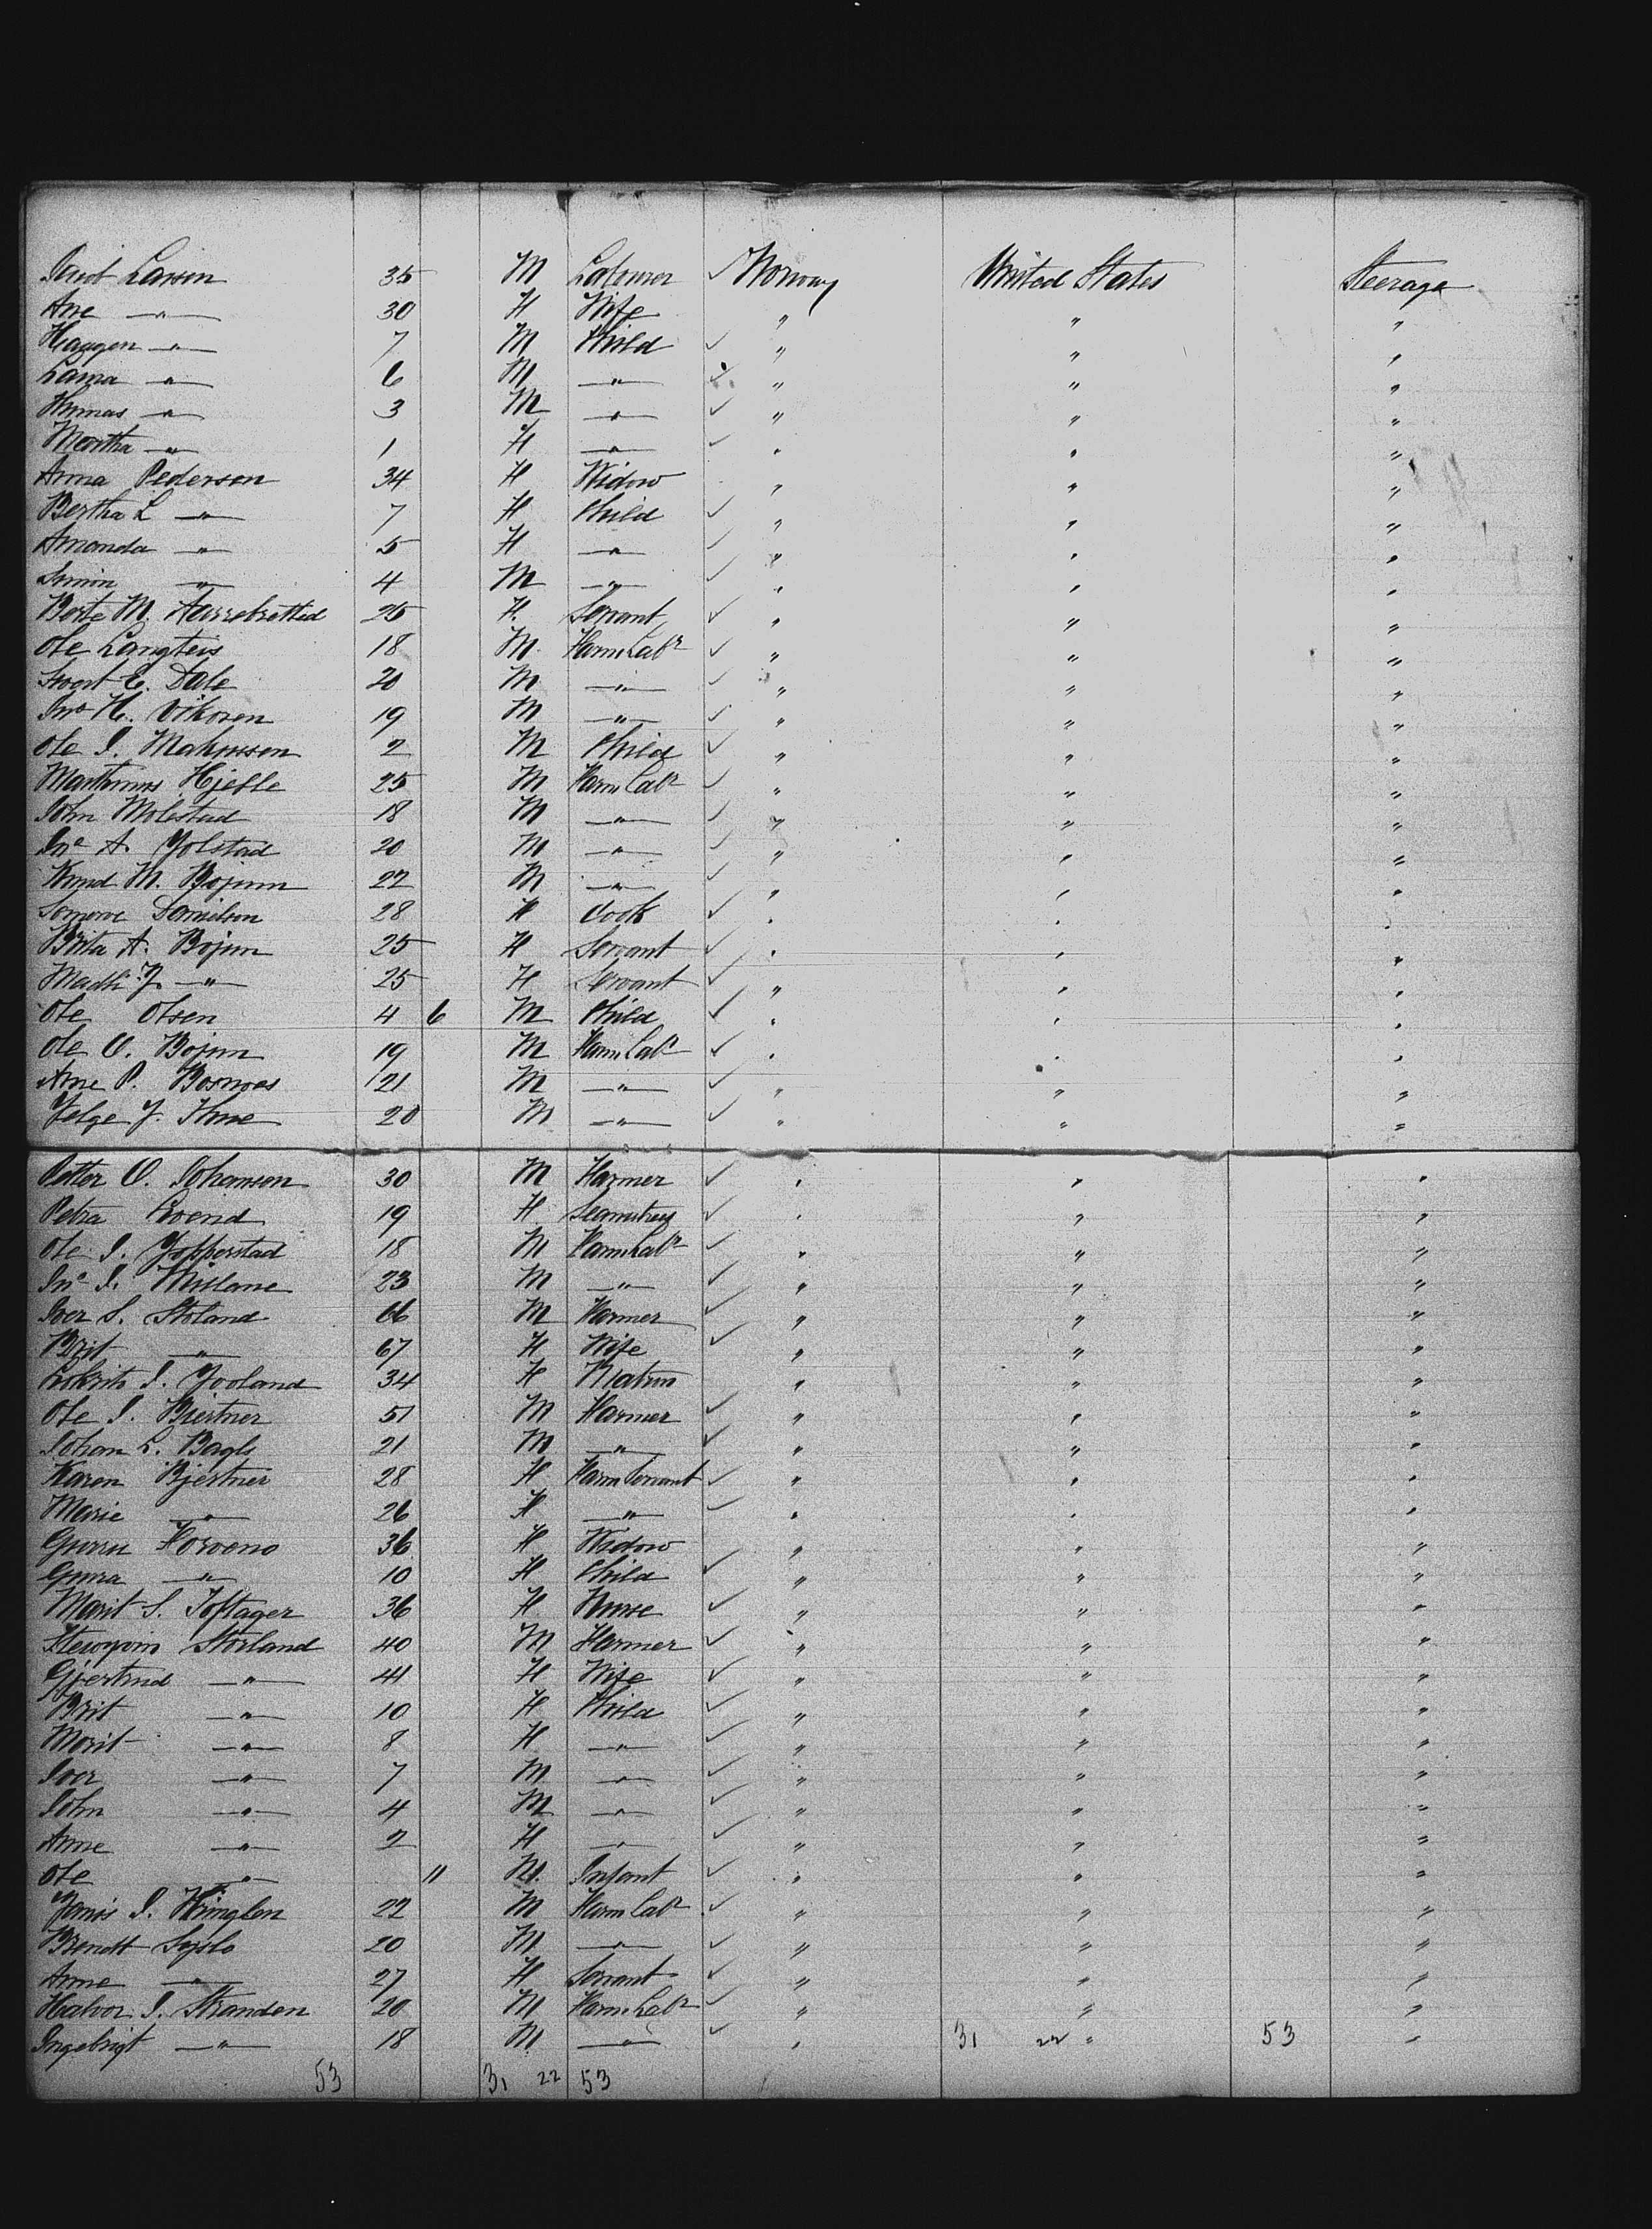 Larsen 35 M Labourer ✓ Norway United States Steerage
Ane —"— 30 F Wife " " "
Haggen —"— 7 M Child ✓ " " "
—"— 6 M —"— ✓ " " "
Thomas —"— 3 M —"— ✓ " " "
Martha —"— 1 F —"— ✓ " " "
Anna Pedersen 34 F Widow " " "
Bertha L —"— 7 F Child ✓ " " "
Amanda —"— 5 F —"— ✓ " " "
Simon —"— 4 M —"— ✓ " " "
Berte M. 25 F. Servant ✓ " " "
Ole Langteis 18 M. Farm Labr ✓ " " "
E. Dale 20 M —"— ✓ " " "
Jno H. Vikoren 19 M —"— ✓ " " "
Ole I. 2 M Child ✓ " " "
Marthinus Hjelle 25 M Farm Labr ✓ " " "
John Molestad 18 M —"— ✓ " " "
Jno A. Jolstad 20 M —"— ✓ " " "
Knud M. Bojum 22 M —"— ✓ " " "
Danielsen 28 F Cook ✓ " " "
Brita A. Bojum 25 F Servant ✓ " " "
J. —"— 25 F Servant ✓ " " "
Ole Olsen 4 6 M Child ✓ " " "
Ole O. Bojum 19 M Farm Labr ✓ " " "
Arne P. 21 M —"— ✓ " " "
J. 20 M —"— ✓ " " "
Petter O. Johansen 30 M Farmer ✓ " " "
Petra 19 F Seamstress ✓ " " "
Ole I. Jopperstad 18 M Farm Labr ✓ " " "
Jno I. 23 M —"— ✓ " " "
Iver S. Stoland 66 M Farmer ✓ " " "
Brit —"— 67 F Wife ✓ " " "
I. Jooland 34 F Matron " " "
Ole I. Biertner 51 M Farmer ✓ " " "
Johan L. Bagls 21 M —"— ✓ " " "
Karen Bjertner 28 F Farm Servant ✓ " " "
Marie —"— 26 F —"— ✓ " " "
Gurru 36 F Widow " " "
Gurra —"— 10 F Child ✓ " " "
Marit S. Toftager 36 F Nurse ✓ " " "
Storland 40 M Farmer ✓ " " "
Gjertrud —"— 41 F Wife ✓ " " "
Brit —"— 10 F Child ✓ " " "
Marit —"— 8 F —"— ✓ " " "
Iver —"— 7 M —"— ✓ " " "
John —"— 4 M —"— ✓ " " "
Anne —"— 2 F —"— ✓ " " "
Ole —"— 11 M. Infant ✓ " " "
I. 22 M Farm Labr ✓ " " "
Brendt 20 M —"— ✓ " " "
Anne —"— 27 F Servant ✓ " " "
Halvor I. Stranden 20 M Farm Labr ✓ " " "
Ingebrigt —"— 18 M —"— ✓ " 31 22 " 53 "
53 31 22 53